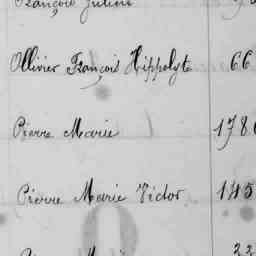 François Julien
Ollivier François Hippolyte 66
Pierre Marie 178
Pierre Marie Victor 145